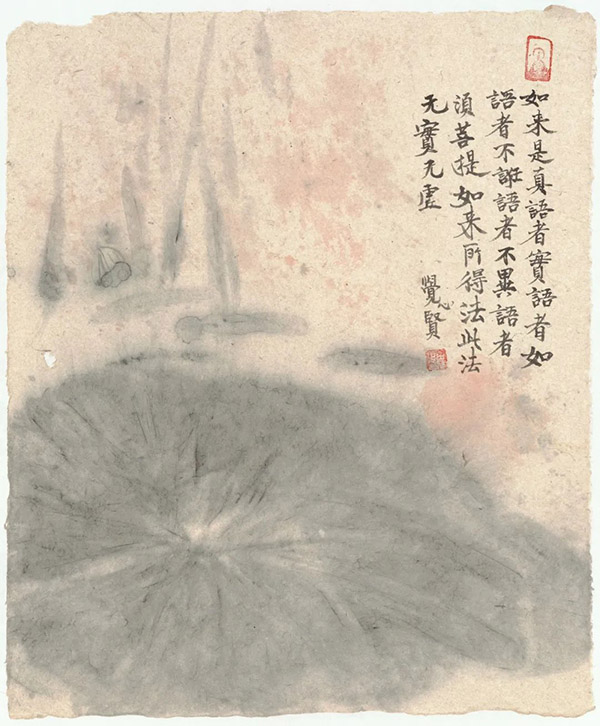 如来是真語者實語者如
語者不誑語者不異語者
須菩提如来所得法此法
无實无虛
覺心賢